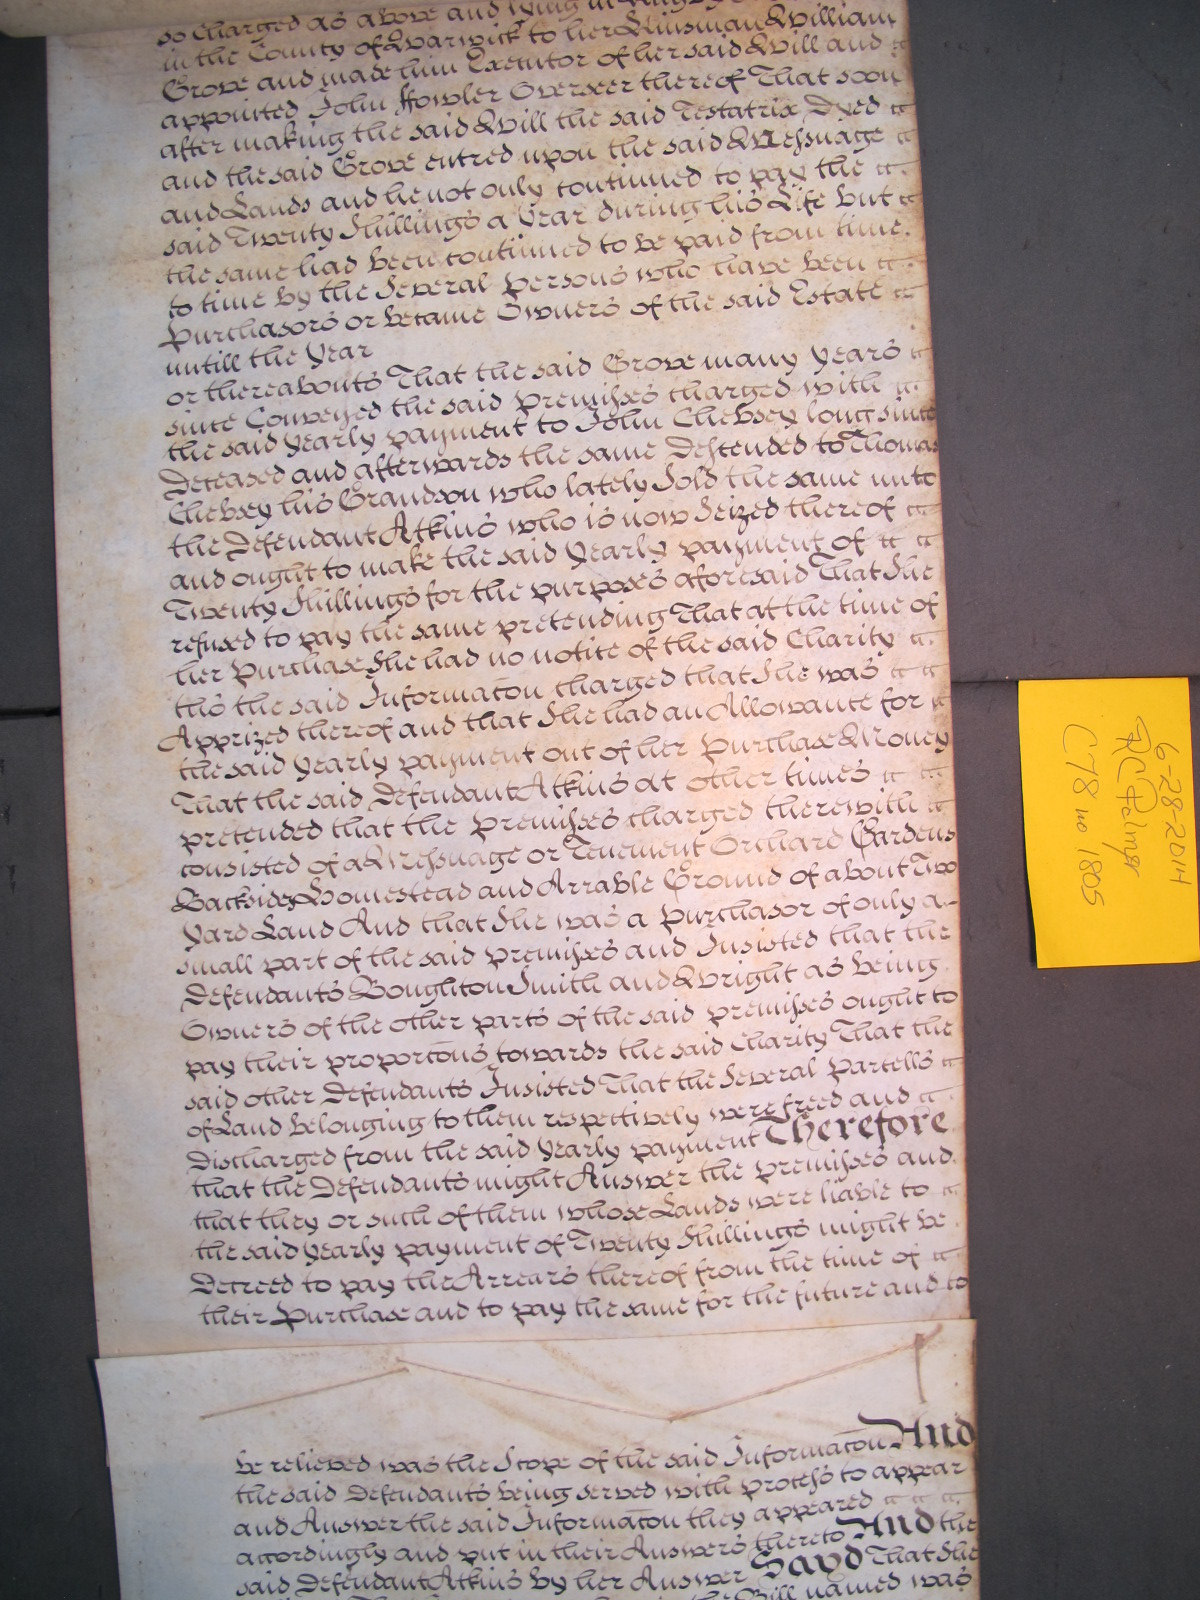 so Charged as above and lying in
in the County of Warwick to her Kinsman William
Grove and made him Executor of her said Will and
appointed John Fowler Overseer thereof That soon
after making the said Will the said Testatrix Dyed
and the said Grove entred upon the said Messuage
and Lands and he not only continued to pay the
said Twenty Shillings a Year during his Life but
the same had been continued to be paid from time
to time by the Several persons who have been
Purchasors or became Owners of the said Estate
untill the Year
or thereabouts That the said Grove many years
since Conveyed the said premisses charged with
the said yearly payment to John Chebsey long since
Deceased and afterwards the same Descended to Thomas
Chebsey his Grandson who lately Sold the same unto
the Defendant Atkins who is now Seized thereof
and ought to make the said yearly payment of
Twenty Shillings for the purposes aforesaid That She
refused to pay the same pretending That at the time of
her Purchase She had no notice of the said Charity
tho the said Informacōn charged that She was
Apprized thereof and that She had an Allowance for
the said yearly payment out of her Purchase Money
That the said Defendant Atkins at other times
pretended that the premisses charged therewith
consisted of a Messuage or Tenement Orchard Gardens
Backsides Homestead and Arrable Ground of about Two
Yard Land And that She was a Purchasor of only a
small part of the said premisses and Insisted that the
Defendants Boughton Smith and Wright as being
Owners of the other parts of the said premisses ought to
pay their proporcōns towards the said Charity That the
said other Defendants Insisted That the Several Parcells
of Land belonging to them respectively were freed and
Discharged from the said yearly payment Therefore
that the Defendants might Answer the premisses and
that they or such of them whose Lands were liable to
the said yearly payment of Twenty Shillings might be
Decreed to pay the Arrears thereof from the time of
their Purchase and to pay the same for the future and to
be relieved was the Scope of the said Informacōn And
the said Defendants being served with process to appear
and Answer the said Informacōn they appeared
accordingly and put in their Answers thereto And the
said Defendant Atkins by her Answer Sayd That She
the Bill named was
6-28-2014
RC Palmer
C78 no 1805